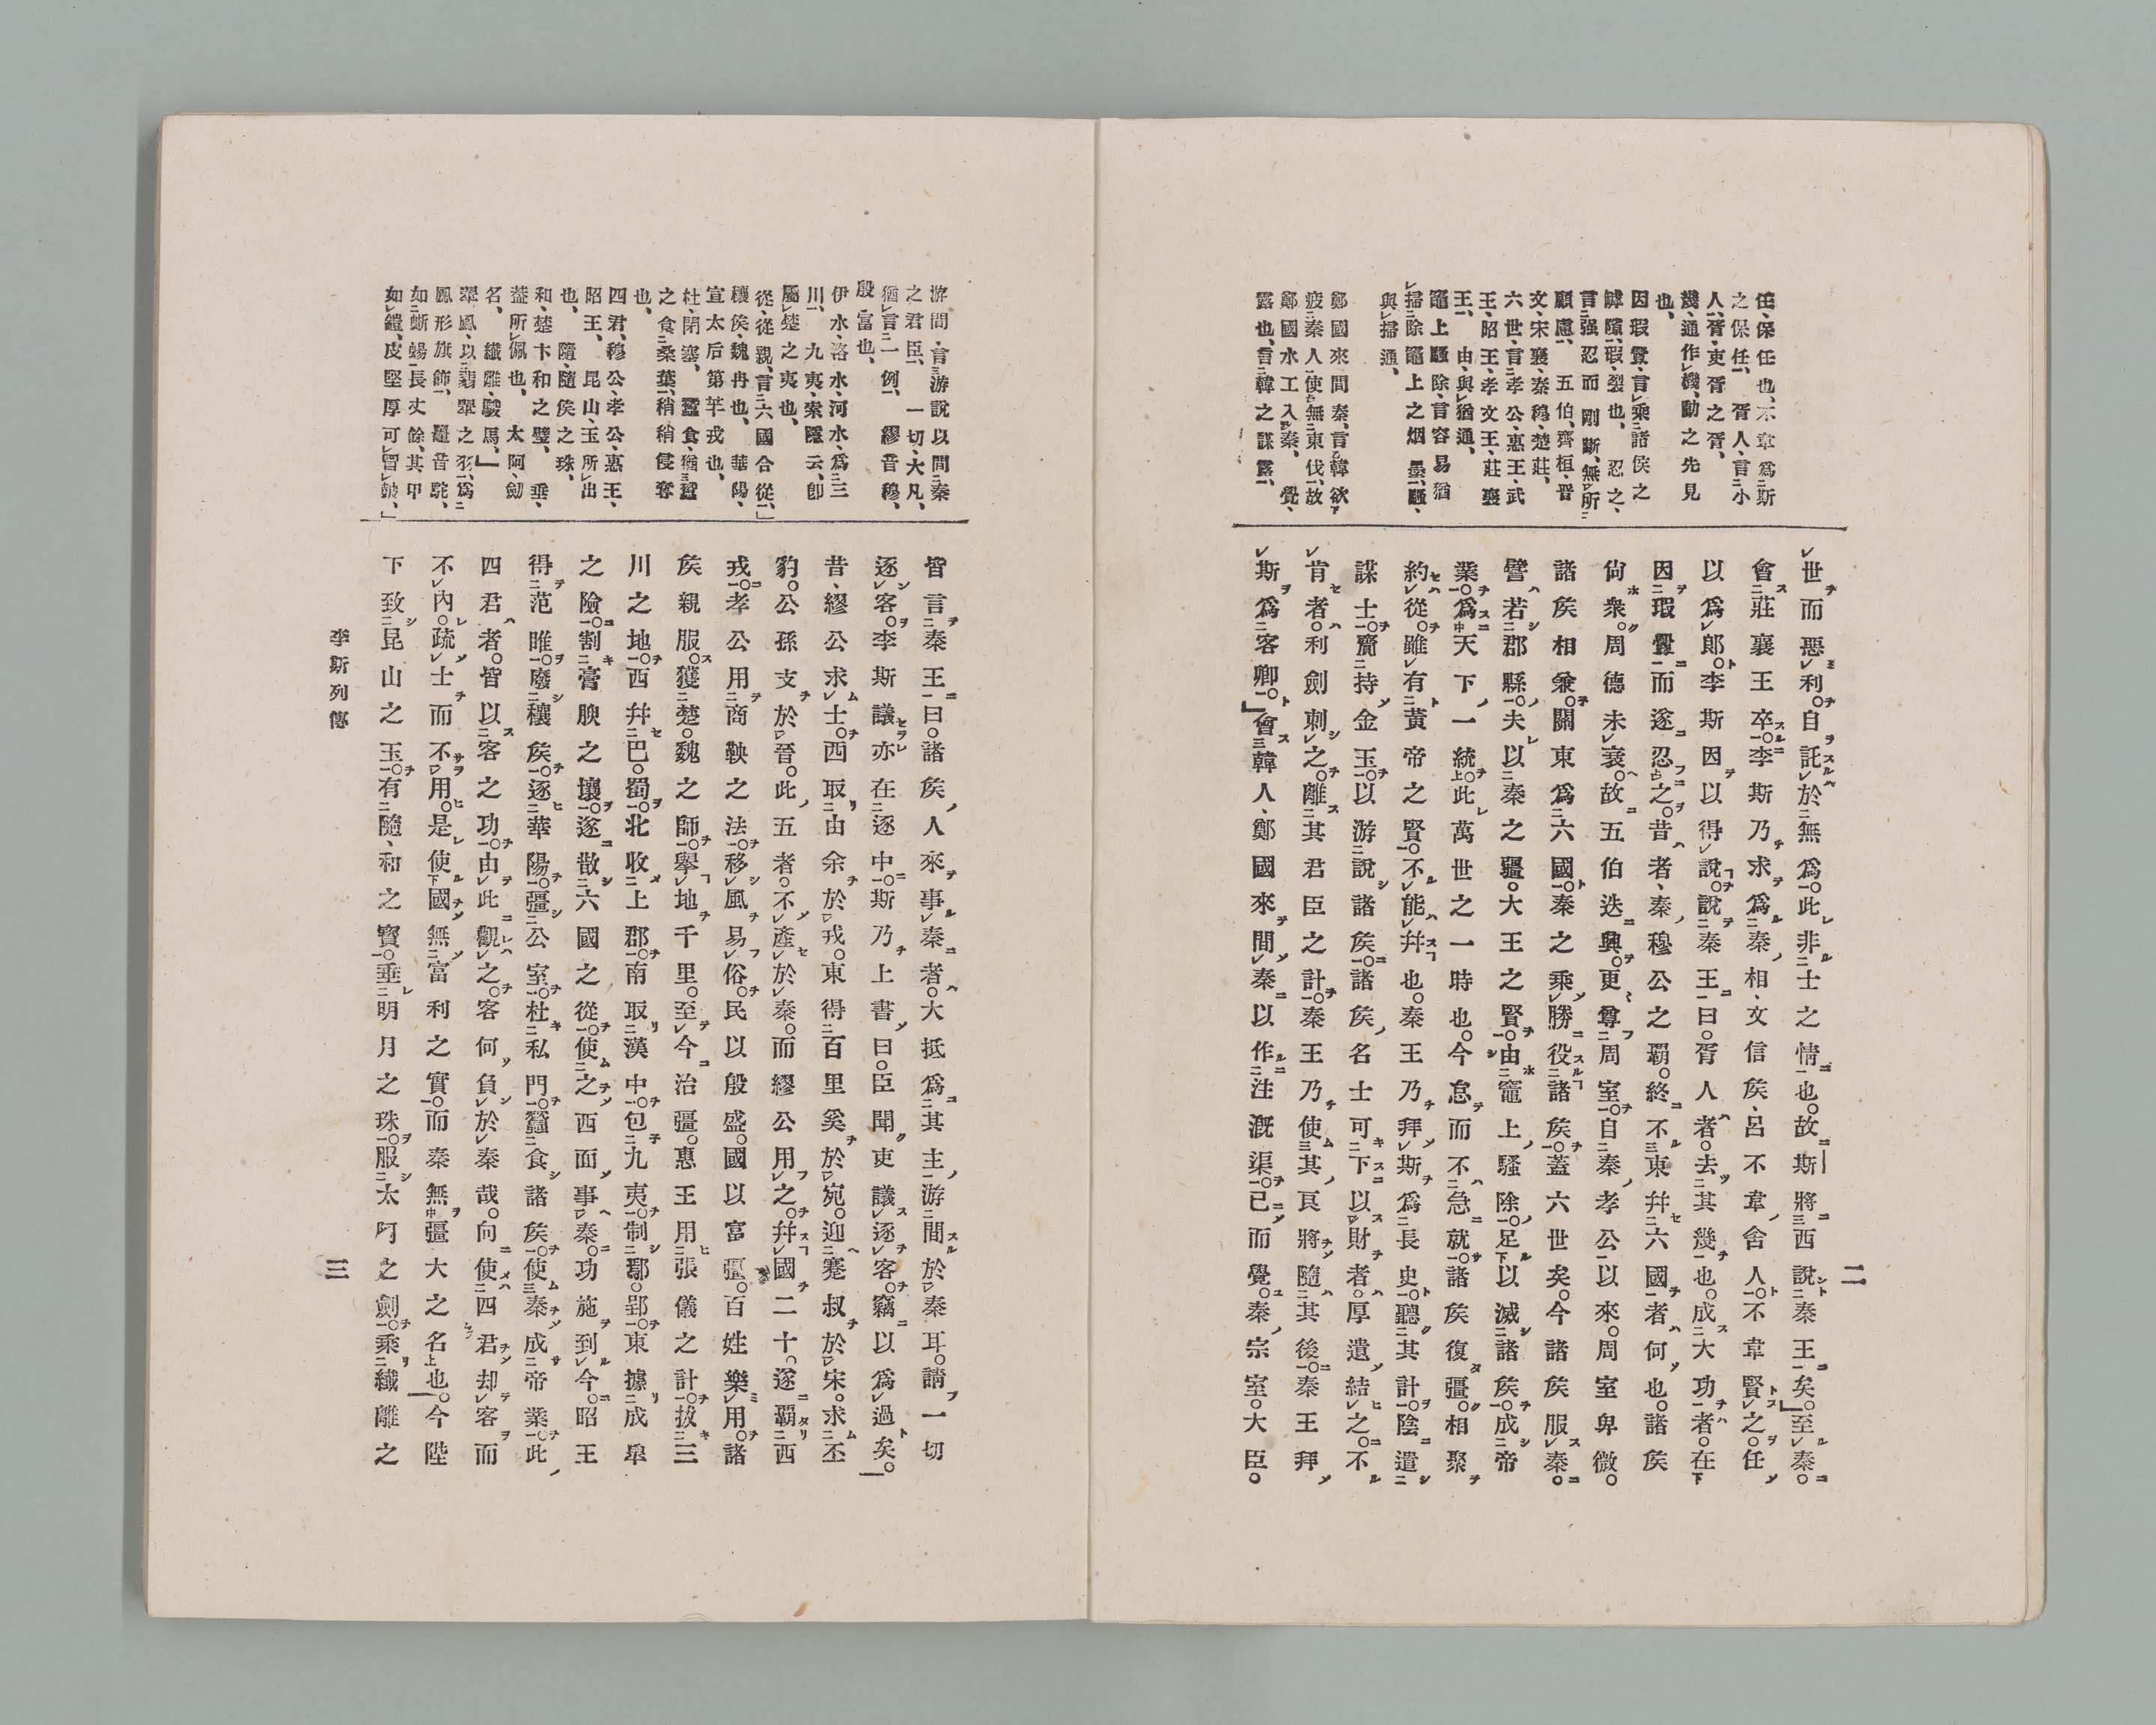 任、保任也、不韋爲斯
之保任、 胥人、言小
人、胥、吏胥之胥、
幾、通作機、動之先見
也、
因瑕釁、言乘諸侯之
罅隙、瑕、裂也、 忍之、
言强忍而剛斷、無所
顧慮、 五伯、齊桓、晉
文、宋襄、秦穆、楚莊、
六世、言孝公、惠王、武
王、昭王、孝文王、莊襄
王、 由、與猶通、
竈上騷除、言容易猶
掃除竈上之烟墨、騷、
與掃通、
鄭國來間秦、言韓欲
疲秦人、使無東伐、故
鄭國水工入秦、 覺、
露也、言韓之謀露、
世而惡利。自託於無爲。此非士之情也。故斯將西說秦王矣。」至秦。
會莊襄王卒。李斯乃求爲秦相、文信侯、呂不韋舍人。不韋賢之。任
以爲郎。李斯因以得說。說秦王曰。胥人者。去其幾也。成大功者。在
因瑕釁而遂忍之。昔者、秦穆公之霸。終不東幷六國者何也。諸侯
尙衆。周德未衰。故五伯迭興。更尊周室。自秦孝公以來。周室卑微。
諸侯相兼。關東爲六國。秦之乘勝役諸侯。蓋六世矣。今諸侯服秦。
譬若郡縣。夫以秦之疆。大王之賢。由竈上騷除。足以滅諸侯。成帝
業。爲天下一統。此萬世之一時也。今怠而不急就。諸侯復彊。相聚
約從。雖有黃帝之賢。不能幷也。秦王乃拜斯爲長史。聽其計。陰遣
謀士。齎持金玉。以游說諸侯。諸侯名士可下以財者。厚遺結之。不
肯者。利劍刺之。離其君臣之計。秦王乃使其良將隨其後。秦王拜
斯爲客卿。」會韓人、鄭國來間秦以作注漑渠。已而覺。秦宗室。大臣。
二
游間、言游說以間秦
之君臣、 一切、大凡、
猶言一例、 繆音穆、
殷、富也、
伊水、洛水、河水、爲三
川、 九夷、索隱云、卽
屬楚之夷也、
從、從親、言六國合從、」
穰侯、魏冉也、 華陽、
宣太后第芊戎也、
杜、閉塞、 蠶食、猶蠶
之食桑葉、稍稍侵奪
也、
四君、穆公、孝公、惠王、
昭王、 昆山、玉所出
也、 隨、隨侯之珠、
和、楚卞和之璧、 垂、
蓋所佩也、 太阿、劒
名、 纖離、駿馬、」
翠鳳、以翡翠之羽、爲
鳳形旗飾、 鼉音駝、
如蜥蜴、長丈餘、其甲
如鎧、皮堅厚可冒鼓、」
皆言秦王曰。諸侯人來事秦者。大抵爲其主、游間於秦耳。請一切
逐客。李斯議亦在逐中。斯乃上書曰。臣聞吏議逐客。竊以爲過矣。
昔、繆公求士。西取由余於戎。東得百里奚於宛。迎蹇叔於宋。求丕
豹。公孫支於晉。此五者。不產於秦。而繆公用之。幷國二十。遂霸西
戎。孝公用商鞅之法。移風易俗。民以殷盛。國以富彊。百姓樂用。諸
侯親服。獲楚。魏之師。擧地千里。至今治彊。惠王用張儀之計。拔三
川之地。西幷巴。蜀。北收上郡。南取漢中。包九夷。制鄢。郢。東據成皐
之險。割膏腴之壤。遂散六國之從。使之西面事秦。功施到今。昭王
得范睢。廢穰侯。逐華陽。彊公室。杜私門。蠶食諸侯。使秦成帝業。此
四君者。皆以客之功。由此觀之。客何負於秦哉。向使四君却客而
不內。疏士而不用。是使國無富利之實。而秦無彊大之名也。今陛
下致昆山之玉。有隨、和之寶。垂明月之珠。服太阿之劍。乘纖離之
李斯列傳
三